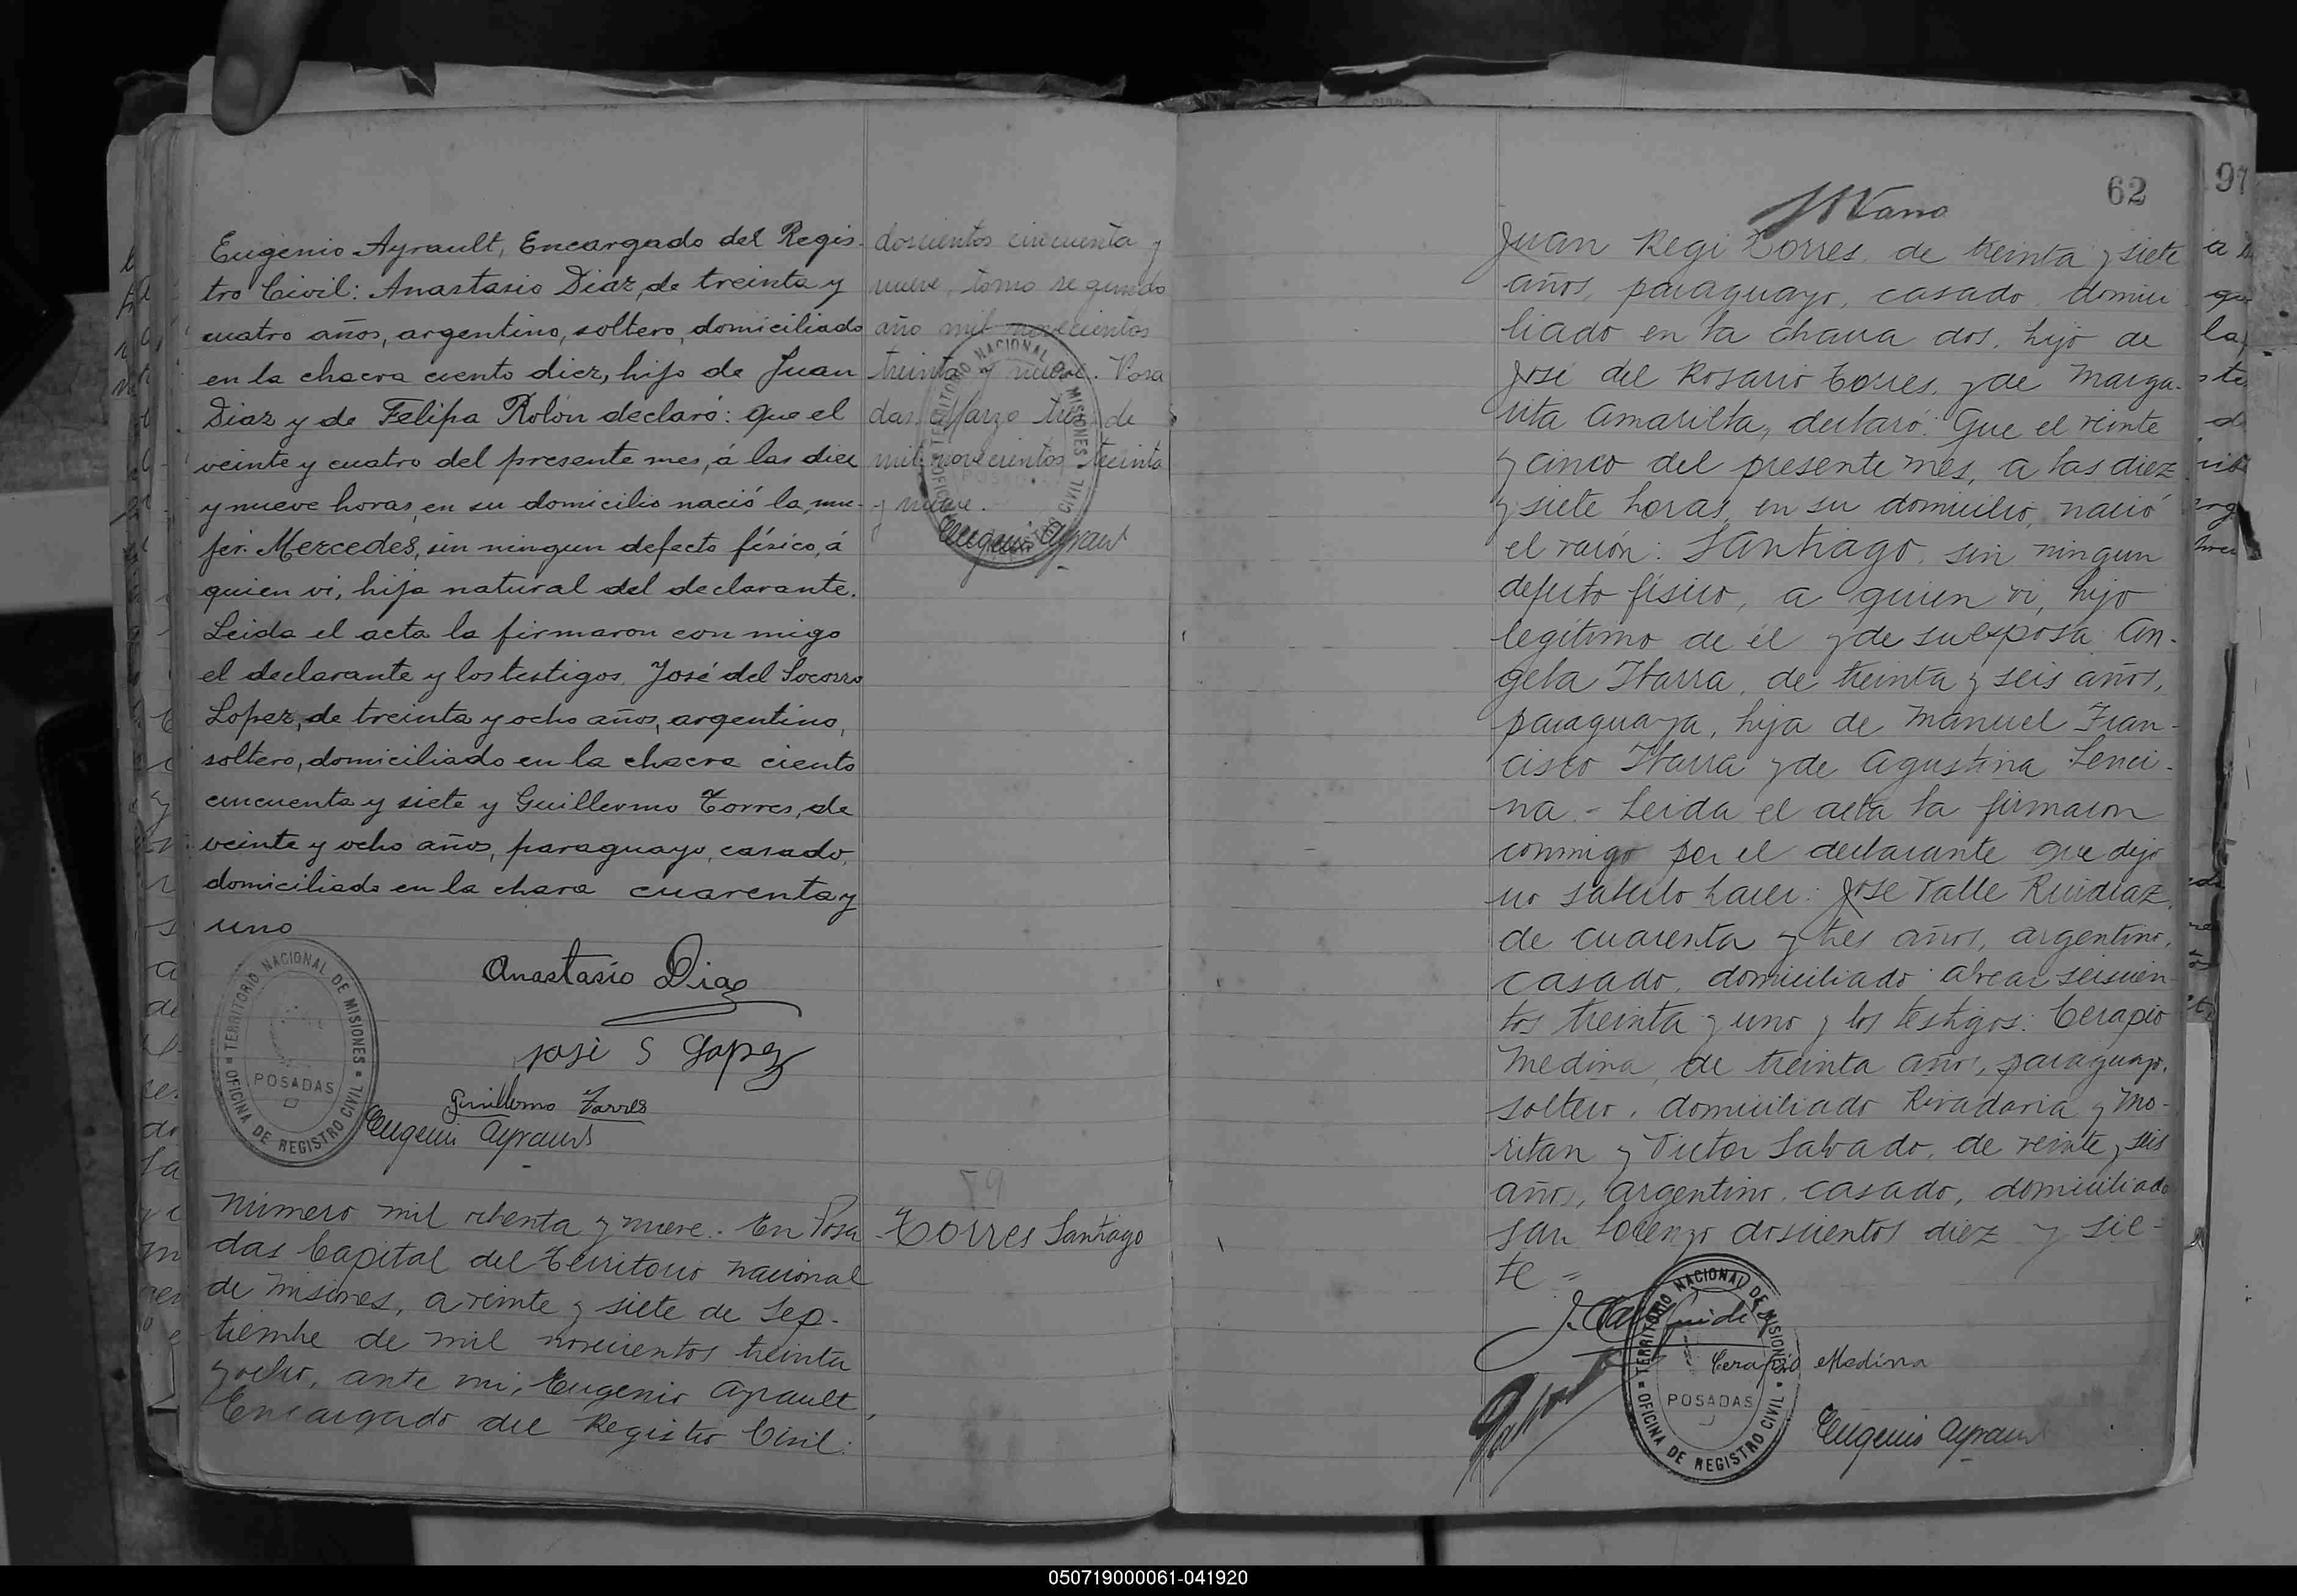 Eugenio Ayrault, Encargado del Regis-
tro Civil: Anastasio Diaz, de treinta y
cuatro años, argentino, soltero, domiciliado
en la chacra ciento diez, hijo de Juan
Diaz y de Felipa Rolón declaró: que el
veinte y cuatro del presente mes, á las diez
y nueve horas, en su domicilio nació la mu-
jer: Mercedes, sin ningun defecto físico, á
quien vi, hija natural del declarante.
Leida el acta la firmaron con migo
el declarante y los testigos. José del Socorro
Lopez, de treinta y ocho años, argentino,
soltero, domiciliado en la chacra ciento
cincuenta y siete y Guillermo Torres, de
veinte y ocho años, paraguayo, casado,
domiciliado en la chara cuarenta y
uno
Anastasio Diaz
José S Lopez
Guillermo Torres
Eugenio Ayrault
TERRITORIO NACIONAL DE MISIONES
POSADAS
OFICINA DE REGISTRO CIVIL
doscientos cincuenta y
nueve, tomo segundo
año mil novecientos
treinta y nueve. Posa
das, Marzo tres de
mil novecientos treinta
y nueve.
Eugenio Ayrault
TERRITORIO NACIONAL DE MISIONES
POSADAS
OFICINA DE REGISTRO CIVIL
Número mil ochenta y nueve. En Posa
das Capital del Territorio nacional
de Misiones, a veinte y siete de Sep-
tiembre de mil novecientos treinta
y ocho, ante mi, Eugenio Ayrault,
Encargado del Registro Civil:
Torres Santiago
62
97
Juan Regi Torres, de treinta y siete
años, paraguayo, casado, domici
liado en la chacra dos, hijo de
José del Rosario Torres, y de Marga-
rita Amarilla, declaró: Que el veinte
y cinco del presente mes, a las diez
y siete horas, en su domicilio, nació
el varón: Santiago, sin ningun
defecto físico, a quien vi, hijo
legítimo de él y de su esposa An-
gela Ibarra, de treinta y seis años,
paraguaya, hija de Manuel Fran-
cisco Ibarra y de Agustina Lenci-
na.- Leida el acta la firmaron
conmigo por el declarante que dijo
no saberlo hacer: José Valle Ruidiaz,
de cuarenta y tres años, argentino,
casado, domiciliado alvear seiscien-
tos treinta y uno y los testigos: Cerapio
Medina, de treinta años, paraguayo,
soltero, domiciliado Rivadavia y Mo-
ritan y Victor Salvado, de veinte y seis
años, argentino, casado, domiciliado
San Lorenzo doscientos diez y sie-
te =
Cerapio Medina
Eugenio Ayrault
TERRITORIO NACIONAL DE MISIONES
POSADAS
OFICINA DE REGISTRO CIVIL
050719000061-041920